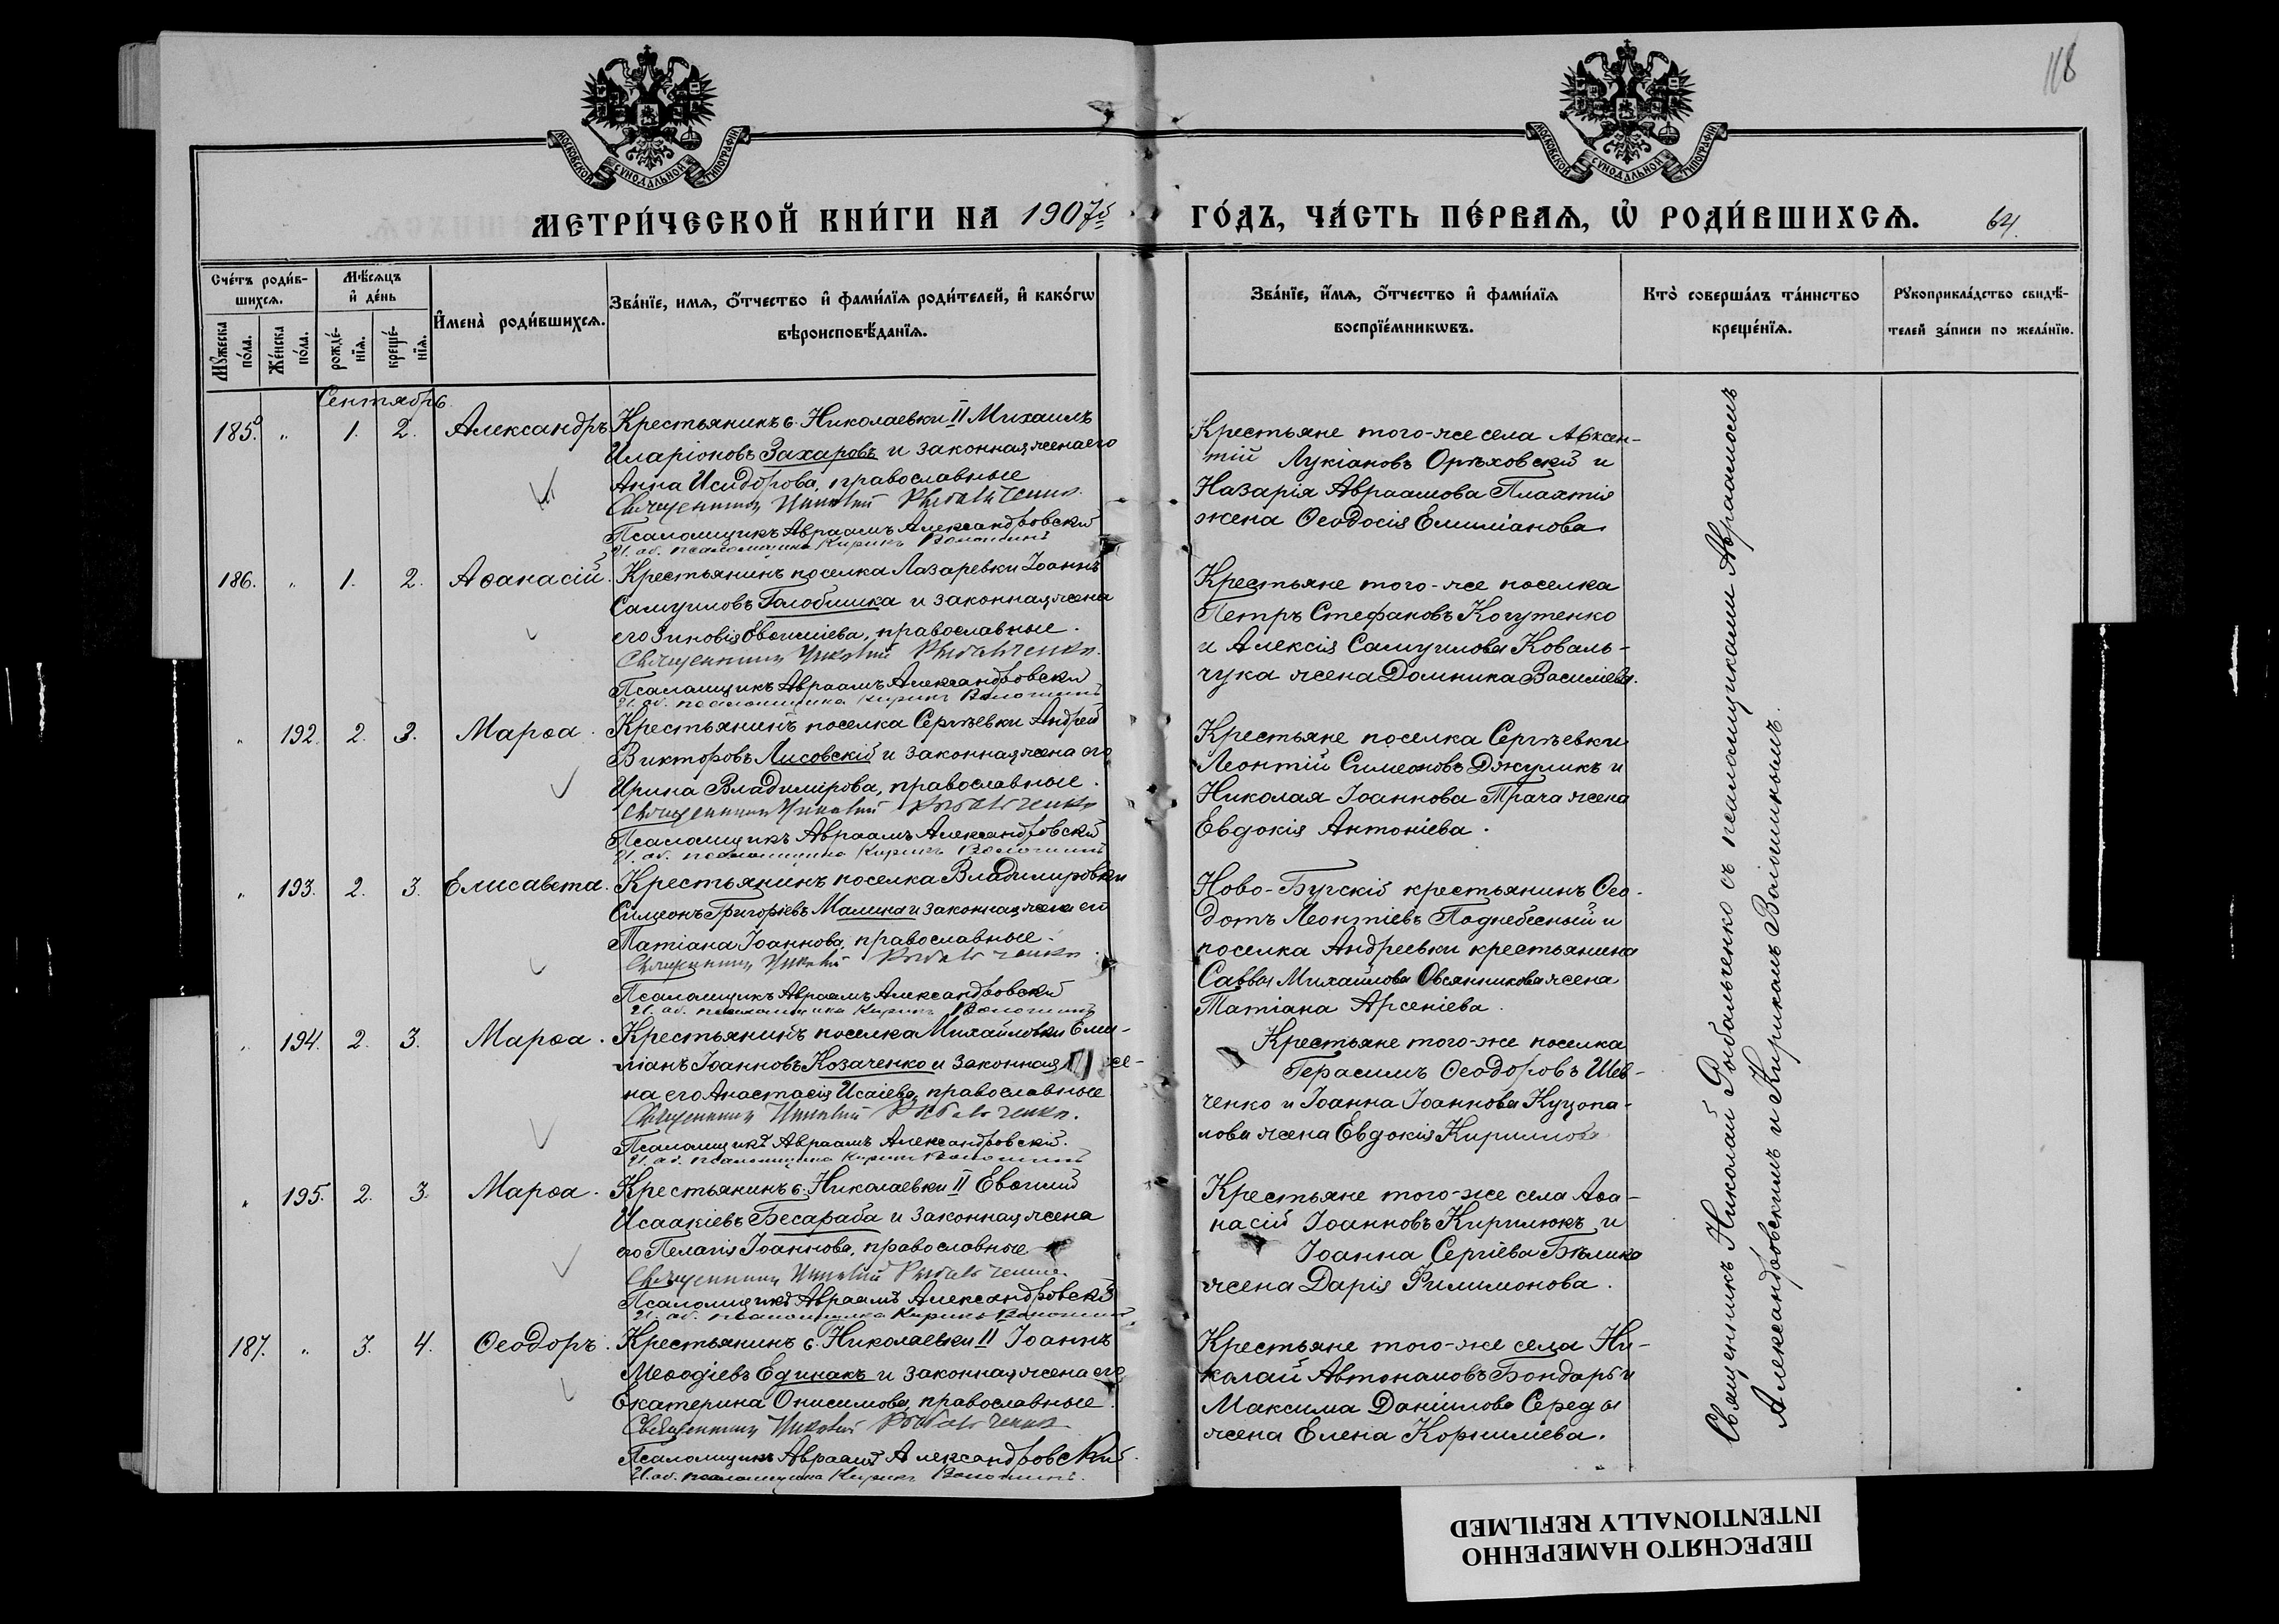 118
МОСКОВСКОЙ СѴНОДАЛЬНОЙ ТИПОГРАФІИ
МОСКОВСКОЙ СѴНОДАЛЬНОЙ ТИПОГРАФІИ
МЕТРИ́ЧЕСКОЙ КНИ́ГИ НА 1907й ГО́ДЪ, ЧА́СТЬ ПЕ́РВАѦ, Ѡ҆ РОДИ́ВШИХСѦ. 64.
Сче́тъ роди́в-
шихсѧ.
Мѣ́сѧцъ
и҆ де́нь
Мꙋ́жеска
по́ла.
Же́нска
по́ла.
рожде́-
нїѧ.
креще́-
нїѧ.
И҆мена̀ роди́вшихсѧ.
Зва́нїе, имѧ, ѻ҆́тчество и҆ фами́лїѧ роди́телей, и҆ како́гѡ
вѣроисповѣ́данїѧ.
Зва́нїе, и҆́мѧ, ѻ҆́тчество и҆ фами́лїѧ
воспрїе́мникѡвъ.
Кто̀ соверша́лъ та́инство
креще́нїѧ.
Рꙋкоприкла́дство свидѣ́-
телей за́писи по жела́нїю.
Сентябрь
185. " 1. 2. Александръ Крестьянинъ с. Николаевки II Михаилъ
Иларіоновъ Захаровъ и законная жена его
Анна Исидорова, православные
Священникъ Николай Рыбальченко.
Псаломщикъ Авраамъ Александровскій
И. об. псаломщика Кирикъ Волошинъ
Крестьяне того-же села Авксен-
тій Лукіановъ Орѣховскій и
Назарія Авраамова Плахтія
жена Ѳеодосія Емиліанова
186. " 1. 2. Аѳанасій. Крестьянинъ поселка Лазаревки Іоаннъ
Самуиловъ Голобишка и законная жена
его Зиновія Евѳиміева, православные.
Священникъ Николай Рыбальченко.
Псаломщикъ Авраамъ Александровскій
И. об. псаломщика Кирикъ Волошинъ
Крестьяне того-же поселка
Петръ Стефановъ Когутенко
и Алексія Самуилова Коваль-
чука жена Домника Василіева.
" 192. 2. 3. Марѳа. Крестьянинъ поселка Сергѣевки Андрей
Викторовъ Лисовскій и законная жена его
Ирина Владимірова, православные.
Священникъ Николай Рыбальченко
Псаломщикъ Авраамъ Александровскій
И. об. псаломщика Кирикъ Волошинъ
Крестьяне поселка Сергѣевки
Леонтій Симеоновъ Джуликъ и
Николая Іоаннова Трача жена
Евдокія Антоніева.
" 193. 2. 3. Елисавета. Крестьянинъ поселка Владимировки
Симеонъ Григоріевъ Малина и законная жена его
Татіана Іоаннова, православные.
Священникъ Николай Рыбальченко.
Псаломщикъ Авраамъ Александровскій
И. об. псаломщика Кирикъ Волошинъ
Ново-Бугскій крестьянинъ Ѳео-
дотъ Леонтіевъ Поднебесный и
поселка Андреевки крестьянина
Саввы Михаилова Овсянникова жена
Татіана Арсеніева.
" 194. 2. 3. Марѳа. Крестьянинъ поселка Михайловки Еми-
ліанъ Іоанновъ Козаченко и законная же-
на его Анастасія Исаіева, православные
Священникъ Николай Рыбальченко.
Псаломщикъ Авраамъ Александровскій.
И. об. псаломщика Кирикъ Волошинъ
Крестьяне того-же поселка
Герасимъ Ѳеодоровъ Шев-
ченко и Іоанна Іоаннова Куцопа-
лова жена Евдокія Кириллова
" 195. 2. 3. Марѳа. Крестьянинъ с. Николаевки II Евѳимій
Исаакіевъ Бесараба и законная жена
его Пелагія Іоаннова, православные
Священникъ Николай Рыбальченко.
Псаломщикъ Авраамъ Александровскій
И. об. псаломщика Кирикъ Волошинъ
Крестьяне того-же села Аѳа-
насій Іоанновъ Кирилюкъ и
Іоанна Сергіева Бѣлика
жена Дарія Филимонова.
187. " 3. 4. Ѳеодоръ. Крестьянинъ с. Николаевки II Іоаннъ
Меѳодіевъ Единакъ и законная жена его
Екатерина Онисимова, православные.
Священникъ Николай Рыбальченко
Псаломщикъ Авраамъ Александровскій.
И. об. псаломщика Кирикъ Волошинъ.
Крестьяне того-же села Ни-
колай Автономовъ Бондарь и
Максима Даніилова Середы
жена Елена Корниліева.
Священникъ Николай Рыбальченко съ псаломщиками Авраамомъ
Александровскимъ и Кирикомъ Волошинымъ.
ПЕРЕСНЯТО НАМЕРЕННО
INTENTIONALLY REFILMED